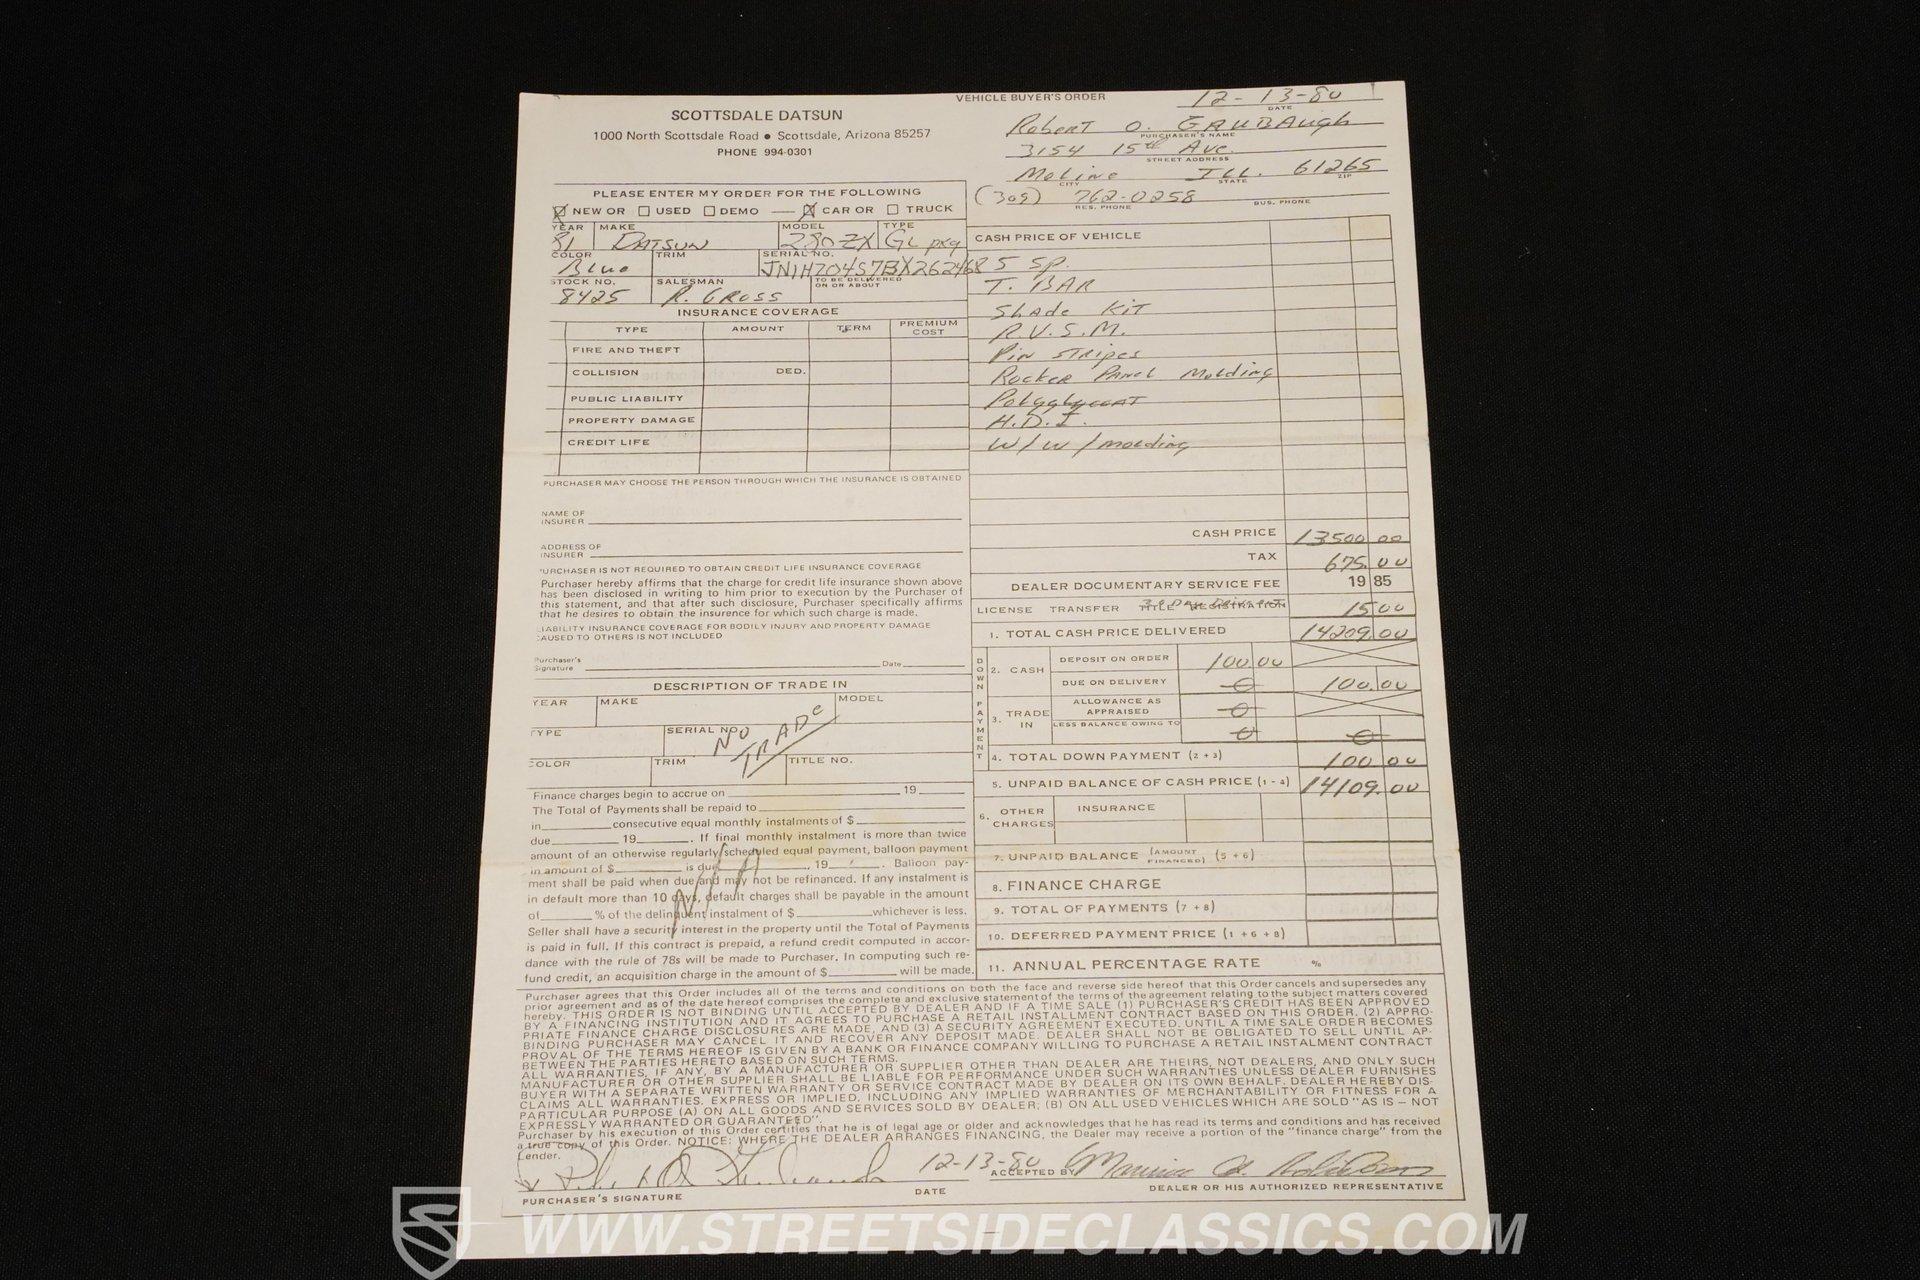 VEHICLE BUYER'S ORDER
12-13-80
DATE
SCOTTSDALE DATSUN
1000 North Scottsdale Road ● Scottsdale, Arizona 85257
PHONE 994-0301
Robert O.
PURCHASER'S NAME
3154 15th Ave.
STREET ADDRESS
Moline ILL. 61265
CITY STATE ZIP
(309) 762-0258
RES. PHONE BUS. PHONE
PLEASE ENTER MY ORDER FOR THE FOLLOWING
NEW OR USED DEMO — CAR OR TRUCK
YEAR MAKE MODEL TYPE
81 DATSUN 280-ZX GL pkg
COLOR TRIM SERIAL NO.
Blue JN1HZ04S7BX262468
STOCK NO. SALESMAN TO BE DELIVERED ON OR ABOUT
8425 R. GROSS
INSURANCE COVERAGE
TYPE AMOUNT TERM PREMIUM COST
FIRE AND THEFT
COLLISION DED.
PUBLIC LIABILITY
PROPERTY DAMAGE
CREDIT LIFE
PURCHASER MAY CHOOSE THE PERSON THROUGH WHICH THE INSURANCE IS OBTAINED
NAME OF
INSURER
ADDRESS OF
INSURER
URCHASER IS NOT REQUIRED TO OBTAIN CREDIT LIFE INSURANCE COVERAGE
Purchaser hereby affirms that the charge for credit life insurance shown above
has been disclosed in writing to him prior to execution by the Purchaser of
this statement, and that after such disclosure, Purchaser specifically affirms
that he desires to obtain the insurence for which such charge is made.
IABILITY INSURANCE COVERAGE FOR BODILY INJURY AND PROPERTY DAMAGE
AUSED TO OTHERS IS NOT INCLUDED
Purchaser's
Signature Date
DESCRIPTION OF TRADE IN
YEAR MAKE MODEL
TYPE SERIAL NO.
NO TRADE
COLOR TRIM TITLE NO.
Finance charges begin to accrue on 19
The Total of Payments shall be repaid to
in consecutive equal monthly instalments of $
due 19 . If final monthly instalment is more than twice
amount of an otherwise regularly scheduled equal payment, balloon payment
in amount of $ is due , 19 . Balloon pay-
ment shall be paid when due and may not be refinanced. If any instalment is
in default more than 10 days, default charges shall be payable in the amount
of % of the delinquent instalment of $ whichever is less.
N/A
Seller shall have a security interest in the property until the Total of Payments
is paid in full. If this contract is prepaid, a refund credit computed in accor-
dance with the rule of 78s will be made to Purchaser. In computing such re-
fund credit, an acquisition charge in the amount of $ will be made.
CASH PRICE OF VEHICLE
5 sp.
T. BAR
Shade Kit
R.V.S.M.
Pin stripes
Rocker Panel Molding
H.D.I.
W/W/molding
CASH PRICE 13500 00
TAX 675.00
DEALER DOCUMENTARY SERVICE FEE 19 85
LICENSE TRANSFER TITLE REGISTRATION 15 00
1. TOTAL CASH PRICE DELIVERED 14209.00
DOWN PAYMENT
2. CASH DEPOSIT ON ORDER 100 00
DUE ON DELIVERY 0 100.00
3. TRADE IN ALLOWANCE AS APPRAISED 0
LESS BALANCE OWING TO 0 0
4. TOTAL DOWN PAYMENT (2 + 3) 100 00
5. UNPAID BALANCE OF CASH PRICE (1 - 4) 14109.00
6. OTHER CHARGES INSURANCE
7. UNPAID BALANCE (AMOUNT FINANCED) (5 + 6)
8. FINANCE CHARGE
9. TOTAL OF PAYMENTS (7 + 8)
10. DEFERRED PAYMENT PRICE (1 + 6 + 8)
11. ANNUAL PERCENTAGE RATE %
Purchaser agrees that this Order includes all of the terms and conditions on both the face and reverse side hereof that this Order cancels and supersedes any
prior agreement and as of the date hereof comprises the complete and exclusive statement of the terms of the agreement relating to the subject matters covered
hereby. THIS ORDER IS NOT BINDING UNTIL ACCEPTED BY DEALER AND IF A TIME SALE (1) PURCHASER'S CREDIT HAS BEEN APPROVED
BY A FINANCING INSTITUTION AND IT AGREES TO PURCHASE A RETAIL INSTALLMENT CONTRACT BASED ON THIS ORDER. (2) APPRO-
PRIATE FINANCE CHARGE DISCLOSURES ARE MADE, AND (3) A SECURITY AGREEMENT EXECUTED. UNTIL A TIME SALE ORDER BECOMES
BINDING PURCHASER MAY CANCEL IT AND RECOVER ANY DEPOSIT MADE. DEALER SHALL NOT BE OBLIGATED TO SELL UNTIL AP-
PROVAL OF THE TERMS HEREOF IS GIVEN BY A BANK OR FINANCE COMPANY WILLING TO PURCHASE A RETAIL INSTALMENT CONTRACT
BETWEEN THE PARTIES HERETO BASED ON SUCH TERMS.
ALL WARRANTIES, IF ANY, BY A MANUFACTURER OR SUPPLIER OTHER THAN DEALER ARE THEIRS, NOT DEALERS, AND ONLY SUCH
MANUFACTURER OR OTHER SUPPLIER SHALL BE LIABLE FOR PERFORMANCE UNDER SUCH WARRANTIES UNLESS DEALER FURNISHES
BUYER WITH A SEPARATE WRITTEN WARRANTY OR SERVICE CONTRACT MADE BY DEALER ON ITS OWN BEHALF. DEALER HEREBY DIS-
CLAIMS ALL WARRANTIES, EXPRESS OR IMPLIED, INCLUDING ANY IMPLIED WARRANTIES OF MERCHANTABILITY OR FITNESS FOR A
PARTICULAR PURPOSE (A) ON ALL GOODS AND SERVICES SOLD BY DEALER; (B) ON ALL USED VEHICLES WHICH ARE SOLD "AS IS – NOT
EXPRESSLY WARRANTED OR GUARANTEED".
Purchaser by his execution of this Order certifies that he is of legal age or older and acknowledges that he has read its terms and conditions and has received
a true copy of this Order. NOTICE: WHERE THE DEALER ARRANGES FINANCING, the Dealer may receive a portion of the "finance charge" from the
Lender.
12-13-80 ACCEPTED BY
PURCHASER'S SIGNATURE DATE DEALER OR HIS AUTHORIZED REPRESENTATIVE
WWW.STREETSIDECLASSICS.COM